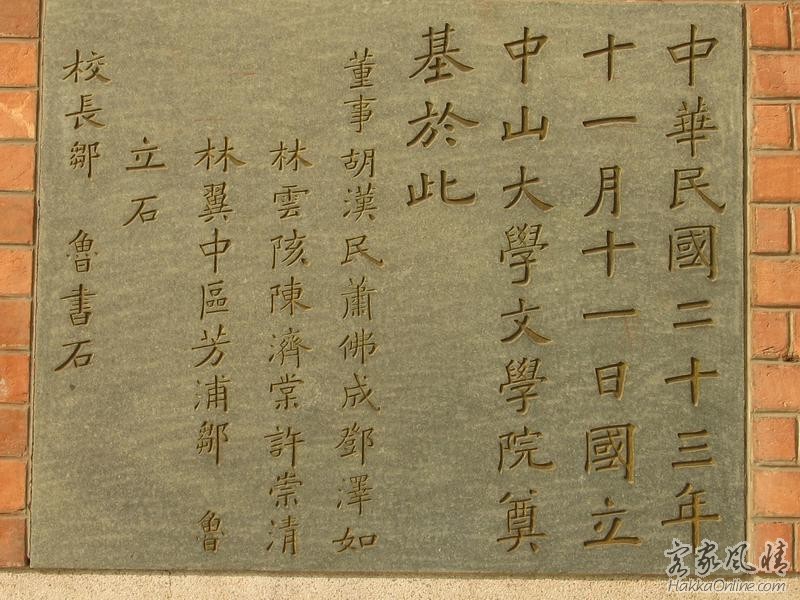 中華民國二十三年
十一月十一日國立
中山大學文學院奠
基於此
董事胡漢民蕭佛成鄧澤如
林雲陔陳濟棠許崇清
林翼中區芳浦鄒 魯
立石
校長鄒 魯書石
客家風情
HakkaOnline.com